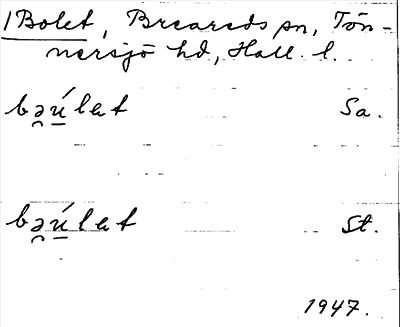 1 Bolet, Breareds sn, Tön-
nersjö hd, Hall. l.
bə̯ú̲let Sa.
bə̯ú̲let St.
1947.